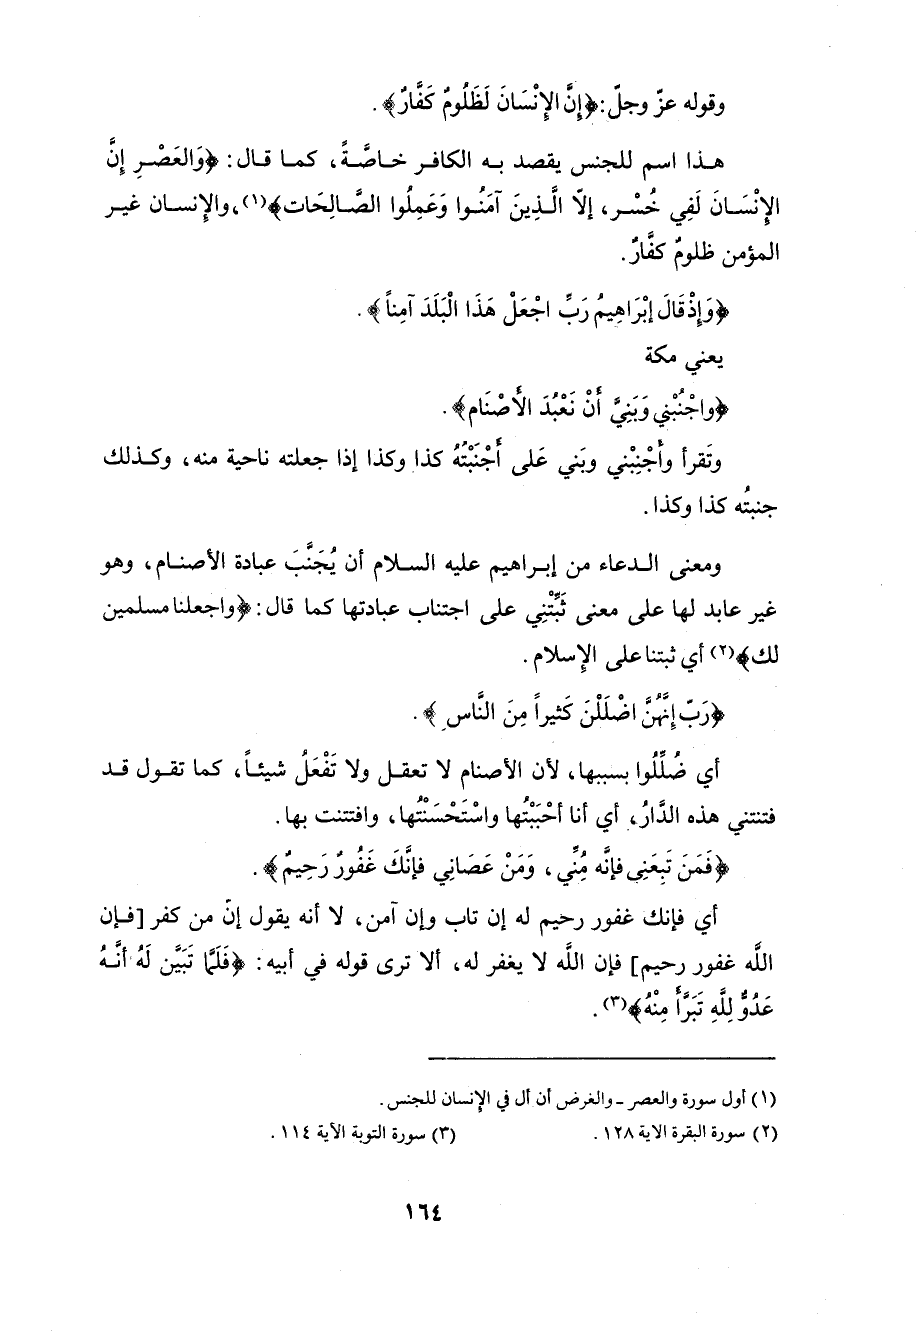 وقوله عزّ وجلّ: ﴿إِنَّ الإِنْسَانَ لَظَلُومٌ كَفَّارٌ﴾.
هـذا اسم للجنس يقصد بـه الكافـر خـاصَّـةً، كمـا قـال: ﴿وَالعَصْـرِ إنَّ
الإنْسَـانَ لَفِي خُسْـر، إلاّ الَّـذِينَ آمَنُـوا وَعَمِلُوا الصَّـالِحَات﴾(١)، والإنسـان غيـر
المؤمن ظلومٌ كفَّارٌ.
﴿وَإِذْ قَالَ إبْرَاهِيمُ رَبِّ اجْعَلْ هَذَا الْبَلَدَ آمِناً﴾.
يعني مكة
﴿واجْنُبْنِي وَبَنِيَّ أَنْ نَعْبُدَ الأَصْنَام﴾.
وتَقرأ وأَجْنِبْني وبَني عَلى أَجْنَبْتُهُ كذا وكذا إذا جعلته ناحية منه، وكـذلك
جنبتُه كذا وكذا.
ومعنى الـدعاء من إبـراهيم عليه السـلام أن يُجَنَّبَ عبادة الأصنـام، وهو
غير عابد لها على معنى ثَبِّتْنِي على اجتناب عبادتها كما قال: ﴿واجعلنا مسلمين
لك﴾(٢) أي ثبتنا على الإسلام.
﴿رَبّ إنَّهُنَّ اضْلَلْنَ كَثيراً مِنَ النَّاسِ﴾.
أي ضُلِّلُوا بسببها، لأن الأصنام لا تعقـل ولا تَفْعَلُ شيئـاً، كما تقـول قـد
فتنتني هذه الدَّارُ، أي أنا أحْبَبْتُها واسْتَحْسَنْتُها، وافتتنت بها.
﴿فَمَنَ تَبِعَنِي فإنَّه مِنِّي، وَمَنْ عَصَانِي فإنَّكَ غَفُورٌ رَحِيمٌ﴾.
أي فإنك غفور رحيم له إن تاب وإن آمن، لا أنه يقول إنّ من كفر [فـإن
اللَّه غفور رحيم] فإن الله لا يغفر له، ألا ترى قوله في أبيه: ﴿فَلَمَّا تَبَيَّن لَهُ أنَّـهُ
عَدُوٌّ لِلَّهِ تَبَرَّأَ مِنْهُ﴾(٣).
(١) أول سورة والعصر - والغرض أن أل في الإنسان للجنس.
(٢) سورة البقرة الاية ١٢٨. (٣) سورة التوبة الآية ١١٤.
١٦٤